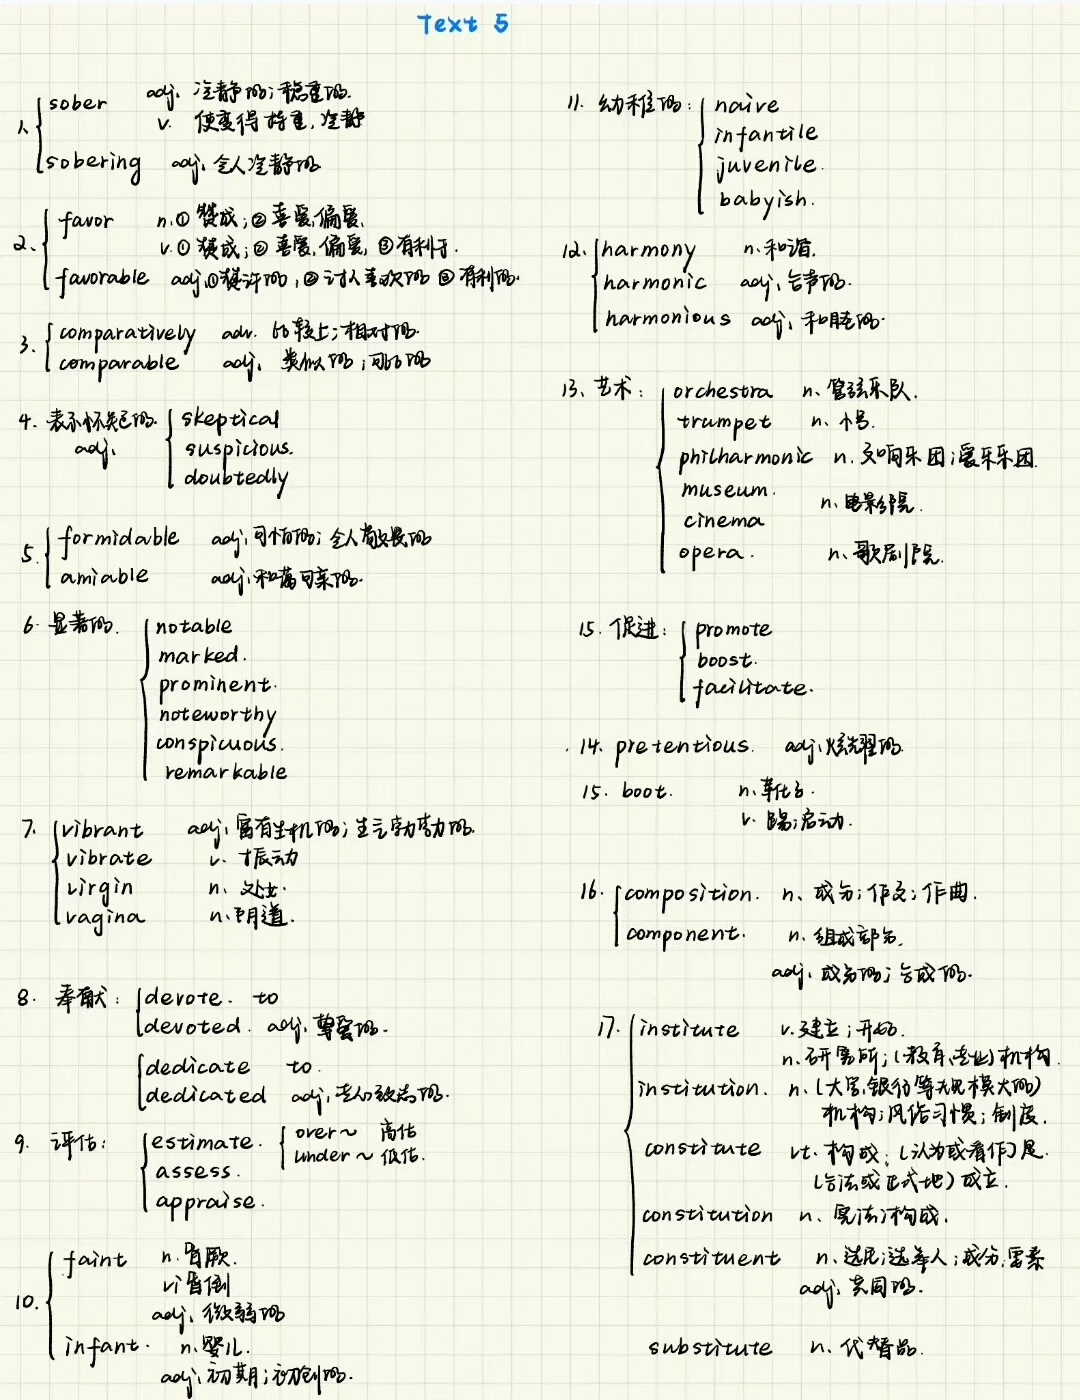 Text 5
1. sober adj. 冷静的;稳重的.
v. 使变得持重,冷静
sobering adj. 令人冷静的
2. favor n.① 赞成;② 喜爱,偏爱.
v.① 赞成;② 喜爱,偏爱,③有利于.
favorable adj.①赞许的,②讨人喜欢的 ③有利的.
3. comparatively adv. 比较上;相对的.
comparable adj. 类似的;可比的
4. 表示怀疑的. adj. skeptical
suspicious.
doubtedly
5. formidable adj.可怕的;令人敬畏的
amiable adj.和蔼可亲的.
6. 显著的. notable
marked.
prominent.
noteworthy
conspicuous.
remarkable
7. vibrant adj.富有生机的;生气勃勃的.
vibrate v. 振动
virgin n. 处女.
vagina n.阴道.
8. 奉献: devote. to
devoted. adj. 挚爱的.
dedicate to.
dedicated adj.专心致志的.
9. 评估: estimate. over~ 高估
under~ 低估.
assess.
appraise.
10. faint n.昏厥.
vi昏倒
adj. 微弱的
infant. n.婴儿.
adj.初期;初创的.
11. 幼稚的: naive
infantile
juvenile.
babyish.
12. harmony n.和谐.
harmonic adj.合声的.
harmonious adj. 和睦的.
13. 艺术: orchestra n. 管弦乐队.
trumpet n. 小号.
philharmonic n. 交响乐团;爱乐乐团.
museum.
cinema n.电影院.
opera. n.歌剧院.
15. 促进: promote
boost.
facilitate.
14. pretentious. adj.炫耀的.
15. boot. n.靴子.
v. 踢;启动.
16. composition. n. 成分;作文;作曲.
component. n. 组成部分.
adj. 成分的;合成的.
17. institute v.建立;开始.
n.研究所;(教育,专业)机构.
institution. n.(大学,银行等规模大的)
机构;风俗习惯;制度.
constitute vt. 构成;(认为或看作)是.
(合法或正式地)成立.
constitution n. 宪法;构成.
constituent n. 选民;选举人;成分,要素
adj. 共同的.
substitute n. 代替品.